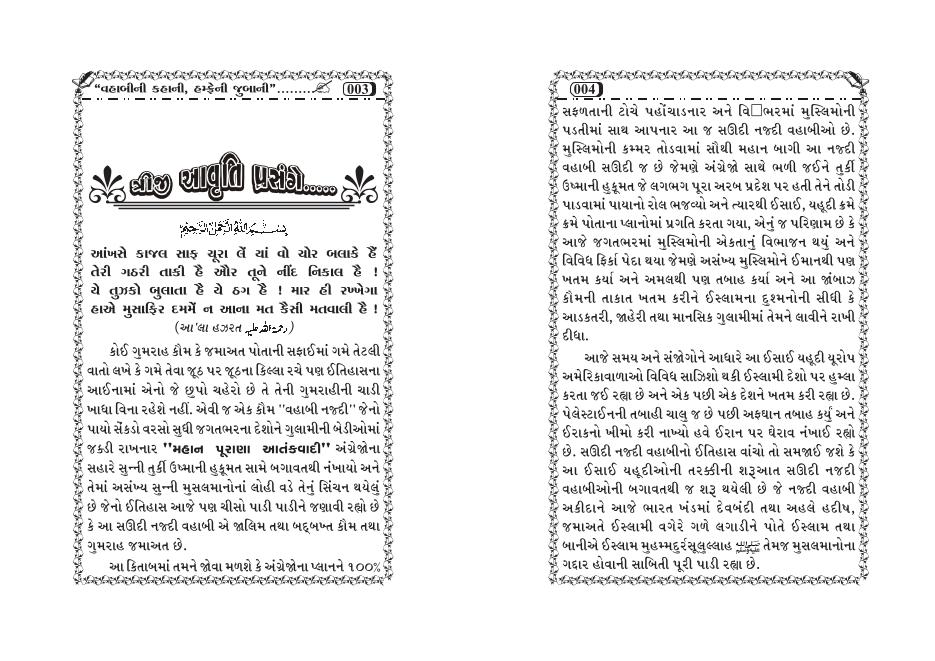 “વહાબીની કહાની, હમ્ફ્રેની જુબાની”.........
003
ત્રીજી આવૃતિ પ્રસંગે.....
بِسْمِ اللّٰهِ الرَّحْمٰنِ الرَّحِيْمِ
આંખસે કાજલ સાફ ચૂરા લેં યાં વો ચોર બલાકે હૈં
તેરી ગઠરી તાકી હૈ ઔર તૂને નીંદ નિકાલ હૈ !
યે તુઝકો બુલાતા હૈ યે ઠગ હૈ ! માર હી રખ્ખેગા
હાએ મુસાફિર દમમેં ન આના મત કૈસી મતવાલી હૈ !
(આ'લા હઝરત رحمۃ اللہ علیہ)
કોઈ ગુમરાહ કૌમ કે જમાઅત પોતાની સફાઈમાં ગમે તેટલી
વાતો લખે કે ગમે તેવા જૂઠ પર જૂઠના કિલ્લા રચે પણ ઈતિહાસના
આઈનામાં એનો જે છુપો ચહેરો છે તે તેની ગુમરાહીની ચાડી
ખાધા વિના રહેશે નહીં. એવી જ એક કૌમ "વહાબી નજદી" જેનો
પાયો સેંકડો વરસો સુધી જગતભરના દેશોને ગુલામીની બેડીઓમાં
જકડી રાખનાર "મહાન પૂરાણા આતંકવાદી" અંગ્રેજોના
સહારે સુન્ની તુર્કી ઉષ્માની હુકૂમત સામે બગાવતથી નંખાયો અને
તેમાં અસંખ્ય સુન્ની મુસલમાનોનાં લોહી વડે તેનું સિંચન થયેલું
છે જેનો ઈતિહાસ આજે પણ ચીસો પાડી પાડીને જણાવી રહ્યો છે
કે આ સઊદી નજદી વહાબી એ જાલિમ તથા બદ્દબખ્ત કૌમ તથા
ગુમરાહ જમાઅત છે.
આ કિતાબમાં તમને જોવા મળશે કે અંગ્રેજોના પ્લાનને ૧૦૦%
004
સફળતાની ટોચે પહોંચાડનાર અને વિ□ભરમાં મુસ્લિમોની
પડતીમાં સાથ આપનાર આ જ સઊદી નજદી વહાબીઓ છે.
મુસ્લિમોની કમ્મર તોડવામાં સૌથી મહાન બાગી આ નજદી
વહાબી સઊદી જ છે જેમણે અંગ્રેજો સાથે ભળી જઈને તુર્કી
ઉષ્માની હુકૂમત જે લગભગ પૂરા અરબ પ્રદેશ પર હતી તેને તોડી
પાડવામાં પાયાનો રોલ ભજવ્યો અને ત્યારથી ઈસાઈ, યહૂદી ક્રમે
ક્રમે પોતાના પ્લાનોમાં પ્રગતિ કરતા ગયા, એનું જ પરિણામ છે કે
આજે જગતભરમાં મુસ્લિમોની એકતાનું વિભાજન થયું અને
વિવિધ ફિર્કા પેદા થયા જેમણે અસંખ્ય મુસ્લિમોને ઈમાનથી પણ
ખતમ કર્યા અને અમલથી પણ તબાહ કર્યા અને આ જાંબાઝ
કૌમની તાકાત ખતમ કરીને ઈસ્લામના દુશ્મનોની સીધી કે
આડકતરી, જાહેરી તથા માનસિક ગુલામીમાં તેમને લાવીને રાખી
દીધા.
આજે સમય અને સંજોગોને આધારે આ ઈસાઈ યહૂદી યૂરોપ
અમેરિકાવાળાઓ વિવિધ સાઝિશો થકી ઈસ્લામી દેશો પર હુમ્લા
કરતા જઈ રહ્યા છે અને એક પછી એક દેશને ખતમ કરી રહ્યા છે.
પેલેસ્ટાઈનની તબાહી ચાલુ જ છે પછી અફઘાન તબાહ કર્યું અને
ઈરાકનો ખીમો કરી નાખ્યો હવે ઈરાન પર ઘેરાવ નંખાઈ રહ્યો
છે. સઊદી નજદી વહાબીનો ઈતિહાસ વાંચો તો સમજાઈ જશે કે
આ ઈસાઈ યહૂદીઓની તરક્કીની શરૂઆત સઊદી નજદી
વહાબીઓની બગાવતથી જ શરૂ થયેલી છે જે નજદી વહાબી
અકીદાને આજે ભારત ખંડમાં દેવબંદી તથા અહલે હદીષ,
જમાઅતે ઈસ્લામી વગેરે ગળે લગાડીને પોતે ઈસ્લામ તથા
બાનીએ ઈસ્લામ મુહમ્મદુર્રસૂલુલ્લાહ ﷺ તેમજ મુસલમાનોના
ગદ્દાર હોવાની સાબિતી પૂરી પાડી રહ્યા છે.